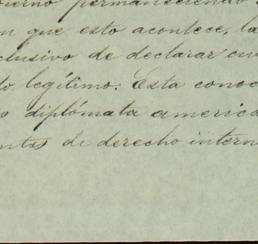 bierno permaneciendo
n que esto acontece, la
clusivo de declarar cu
do legítimo. Esta conoc
s diplómata america
ntas de derecho intern